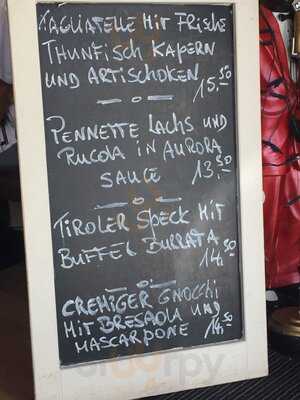 TAGLIATELLE MIT FRISCHE
THUNFISCH KAPERN
UND ARTISCHOKEN 15,50
PENNETTE LACHS UND
RUCOLA IN AURORA
SAUCE 13,50
TIROLER SPECK MIT
BUFFEL BURRATA
14,50
CREMIGER GNOCCHI
MIT BRESAOLA UND
MASCARPONE 14,50